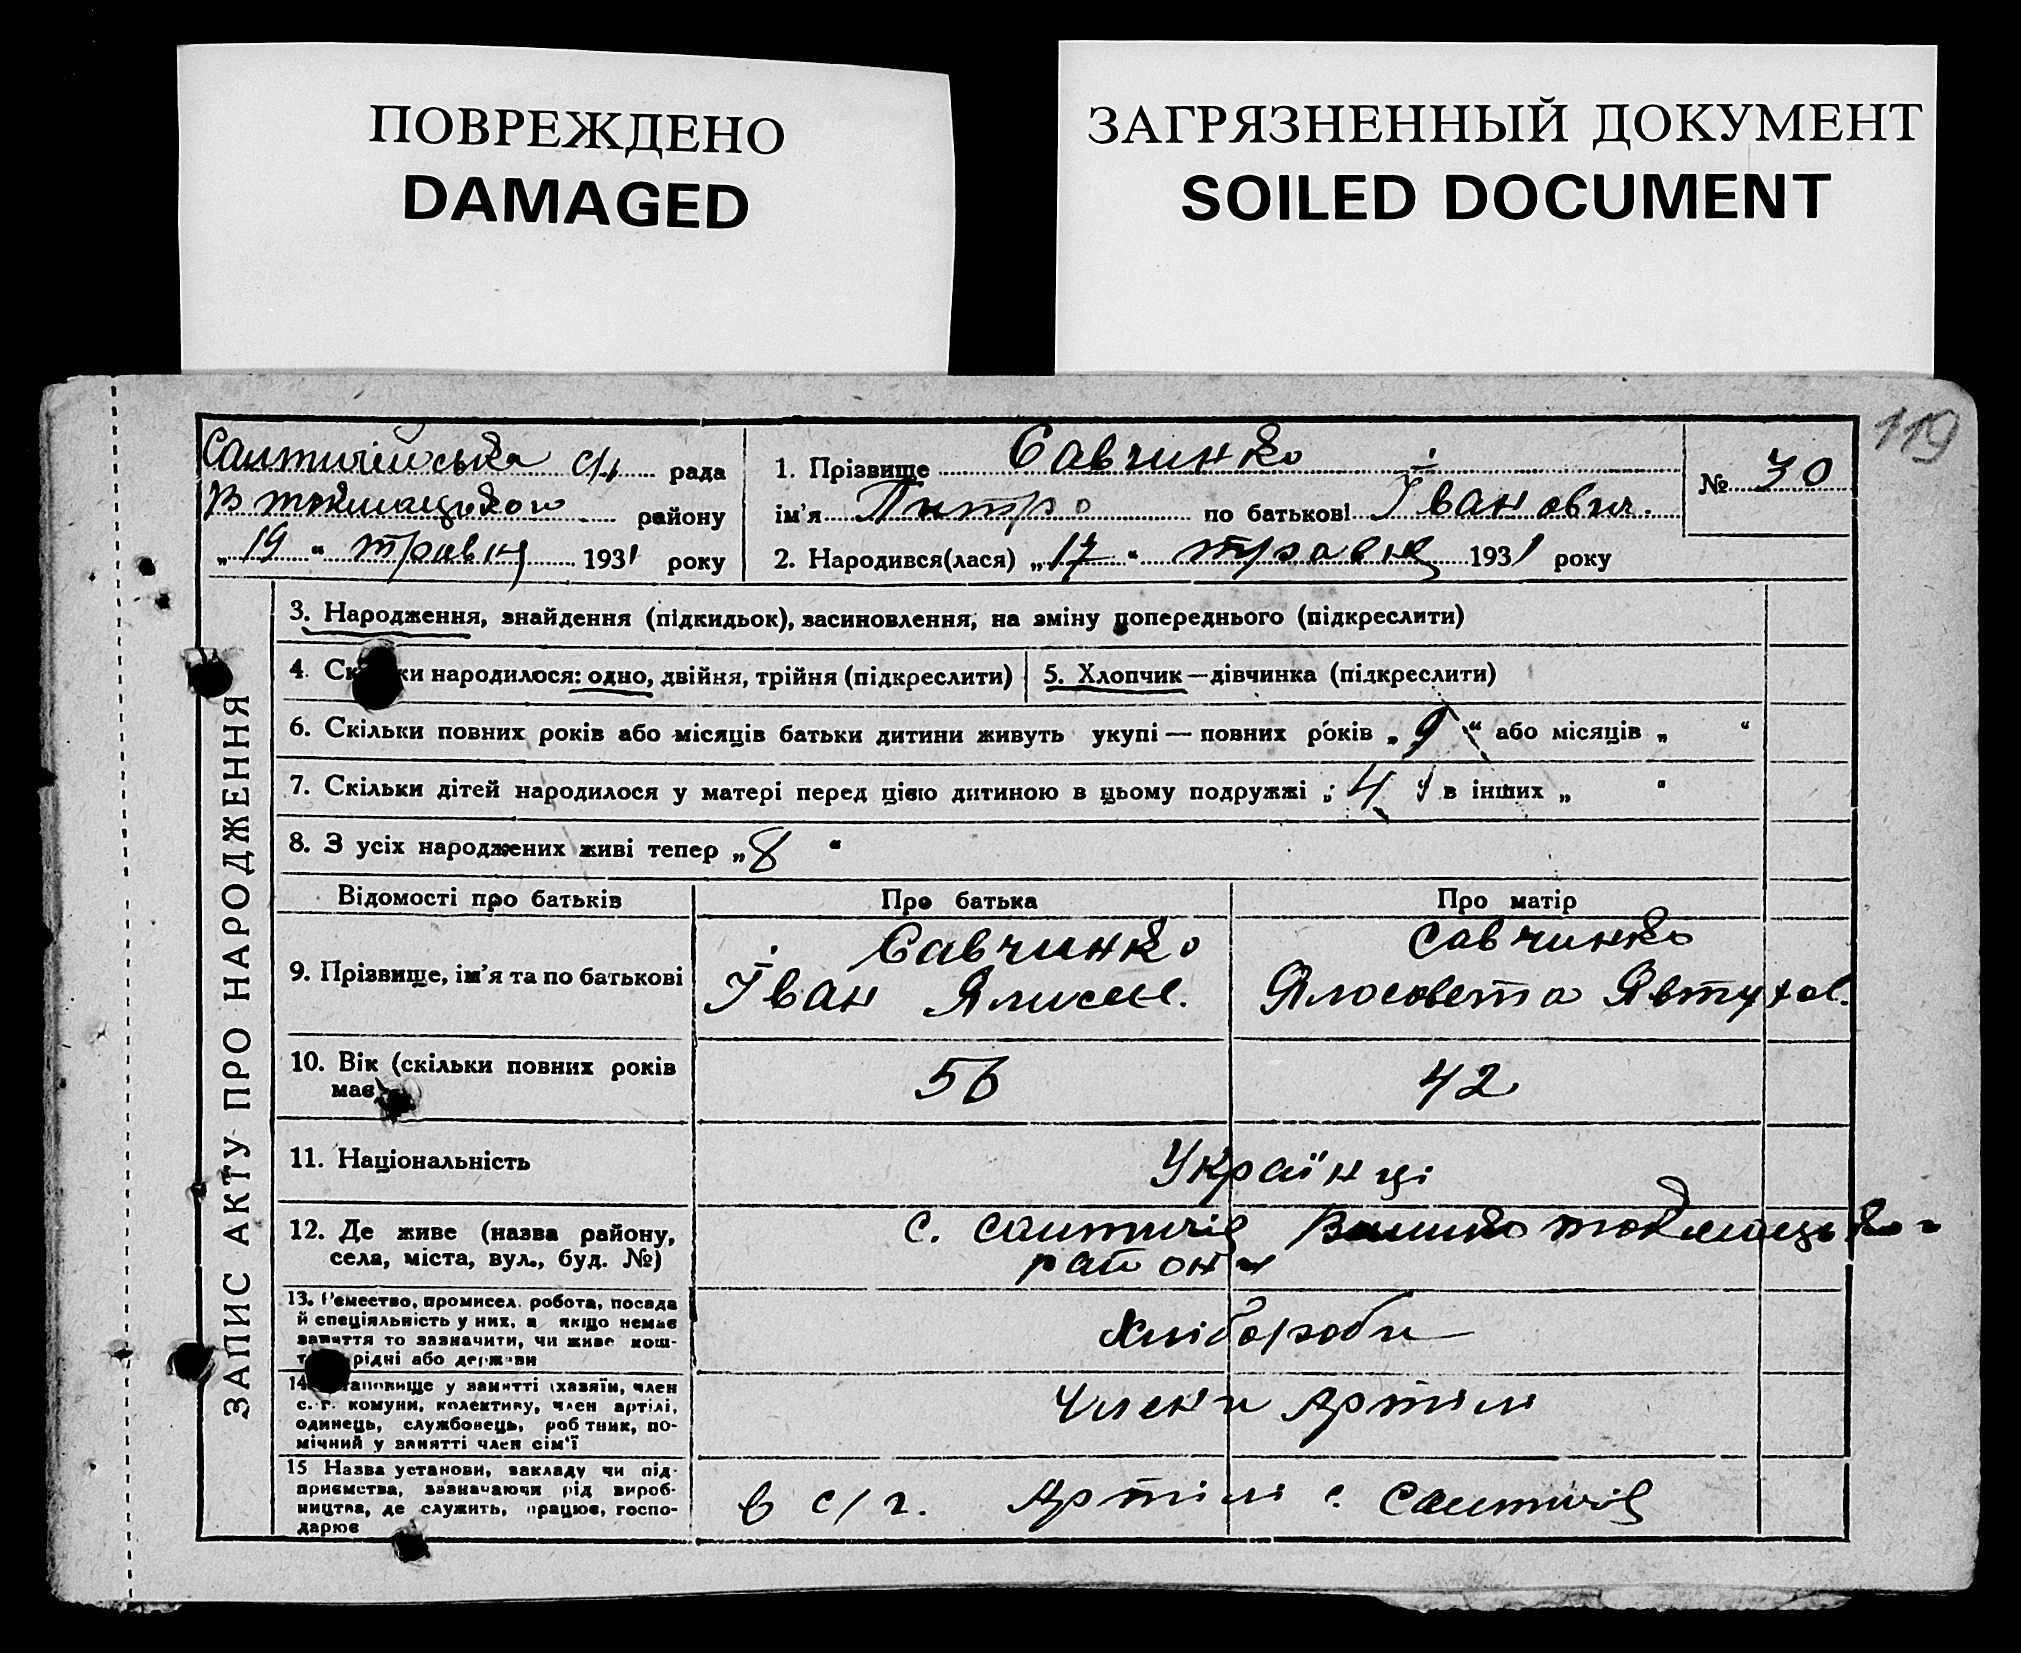 ПОВРЕЖДЕНО
DAMAGED
ЗАГРЯЗНЕННЫЙ ДОКУМЕНТ
SOILED DOCUMENT
119
с/ рада
В токмацького району
„ 19 “ травня 1931 року
1. Прізвище Савчинко
ім'я Питро по батькові Іванович.
2. Народився(лася) „ 17 “ травня 1931 року
№ 30
ЗАПИС АКТУ ПРО НАРОДЖЕННЯ
3. Народження, знайдення (підкидьок), засиновлення, на зміну попереднього (підкреслити)
4. Ск ки народилося: одно, двійня, трійня (підкреслити)
5. Хлопчик — дівчинка (підкреслити)
6. Скільки повних років або місяців батьки дитини живуть укупі — повних років „ 9 “ або місяців „ “
7. Скільки дітей народилося у матері перед цією дитиною в цьому подружжі „ 4 “ в інших „ “
8. З усіх народжених живі тепер „ 8 “
Відомості про батьків
Про батька
Про матір
9. Прізвище, ім'я та по батькові
Савчинко
Іван
Савчинко
Ялосовета Явтухов.
10. Вік (скільки повних років
має
56
42
11. Національність
Українці
12. Де живе (назва району,
села, міста, вул., буд. №)
с. Салтичія Велико токмацького
району
13. Ремество, промисел, робота, посада
й спеціяльність у них, а якщо немає
заняття то зазначити, чи живе кош-
т рідні або держави
Хлібороби
14. тановище у занятті (хазяїн, член
с.-г. комуни, колективу, член артілі,
одинець, службовець, роб тник, по-
мічний у занятті член сім'ї
Члени Артіли
15 Назва установи, закладу чи під-
приємства, зазначаючи рід вироб-
ництва, де служить, працює, госпо-
дарює
в с/г. Артіли с. Салтичія